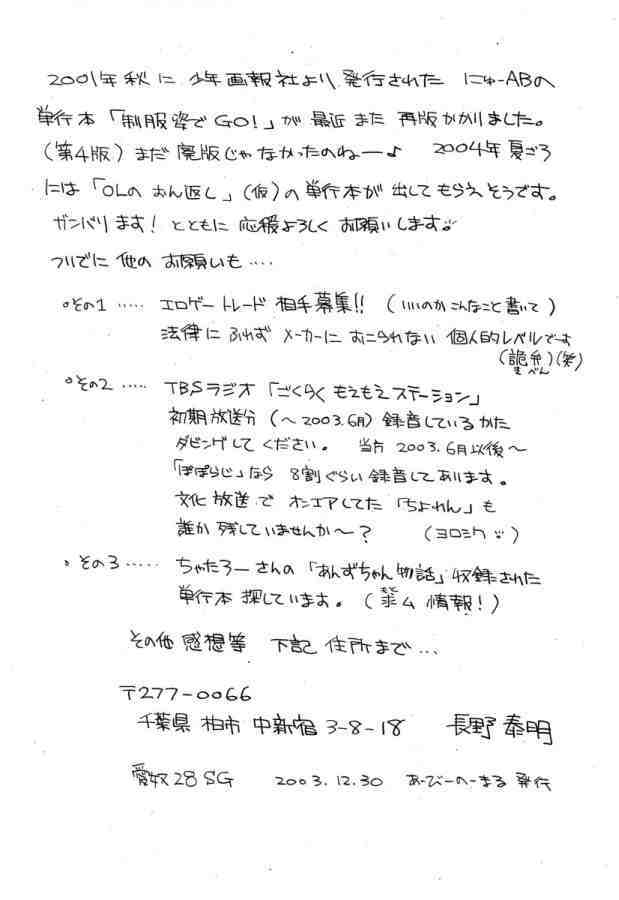 2001年 秋に 少年画報社より 発行された にゅーABの
単行本「制服姿でGO!」が 最近 また 再版かかりました。
(第4版) まだ 廃版じゃなかったのねー♪ 2004年 夏ごろ
には「OLの おん返し」(仮)の 単行本が 出してもらえそうです。
ガンバリます! とともに 応援よろしく お願いします。
ついでに 他の お願いも‥‥
○その1 ‥‥‥ エロゲー トレード 相手募集!! (いいのか こんなこと書いて)
法律に ふれず メーカーに おこられない 個人的レベルです
(詭弁)(笑)
きべん
○その2 ‥‥‥ TBSラジオ「ごくらく もえもえ ステーション」
初期放送分 (〜2003.6月) 録音している かた
ダビングして ください。 当方 2003.6月以後〜
「ぽぽらじ」なら 8割ぐらい 録音してあります。
文化放送で オンエアしてた「ちよれん」も
誰か 残していませんか〜? (ヨロシク)
○その3 ‥‥‥ ちゃたろーさんの「あんずちゃん物語」収録された
単行本 探しています。( 情報!)
その他 感想等 下記 住所まで…
〒277-0066
千葉県 柏市 中新宿 3-8-18 長野 泰明
愛奴28SG 2003.12.30 あーびーのーまる 発行